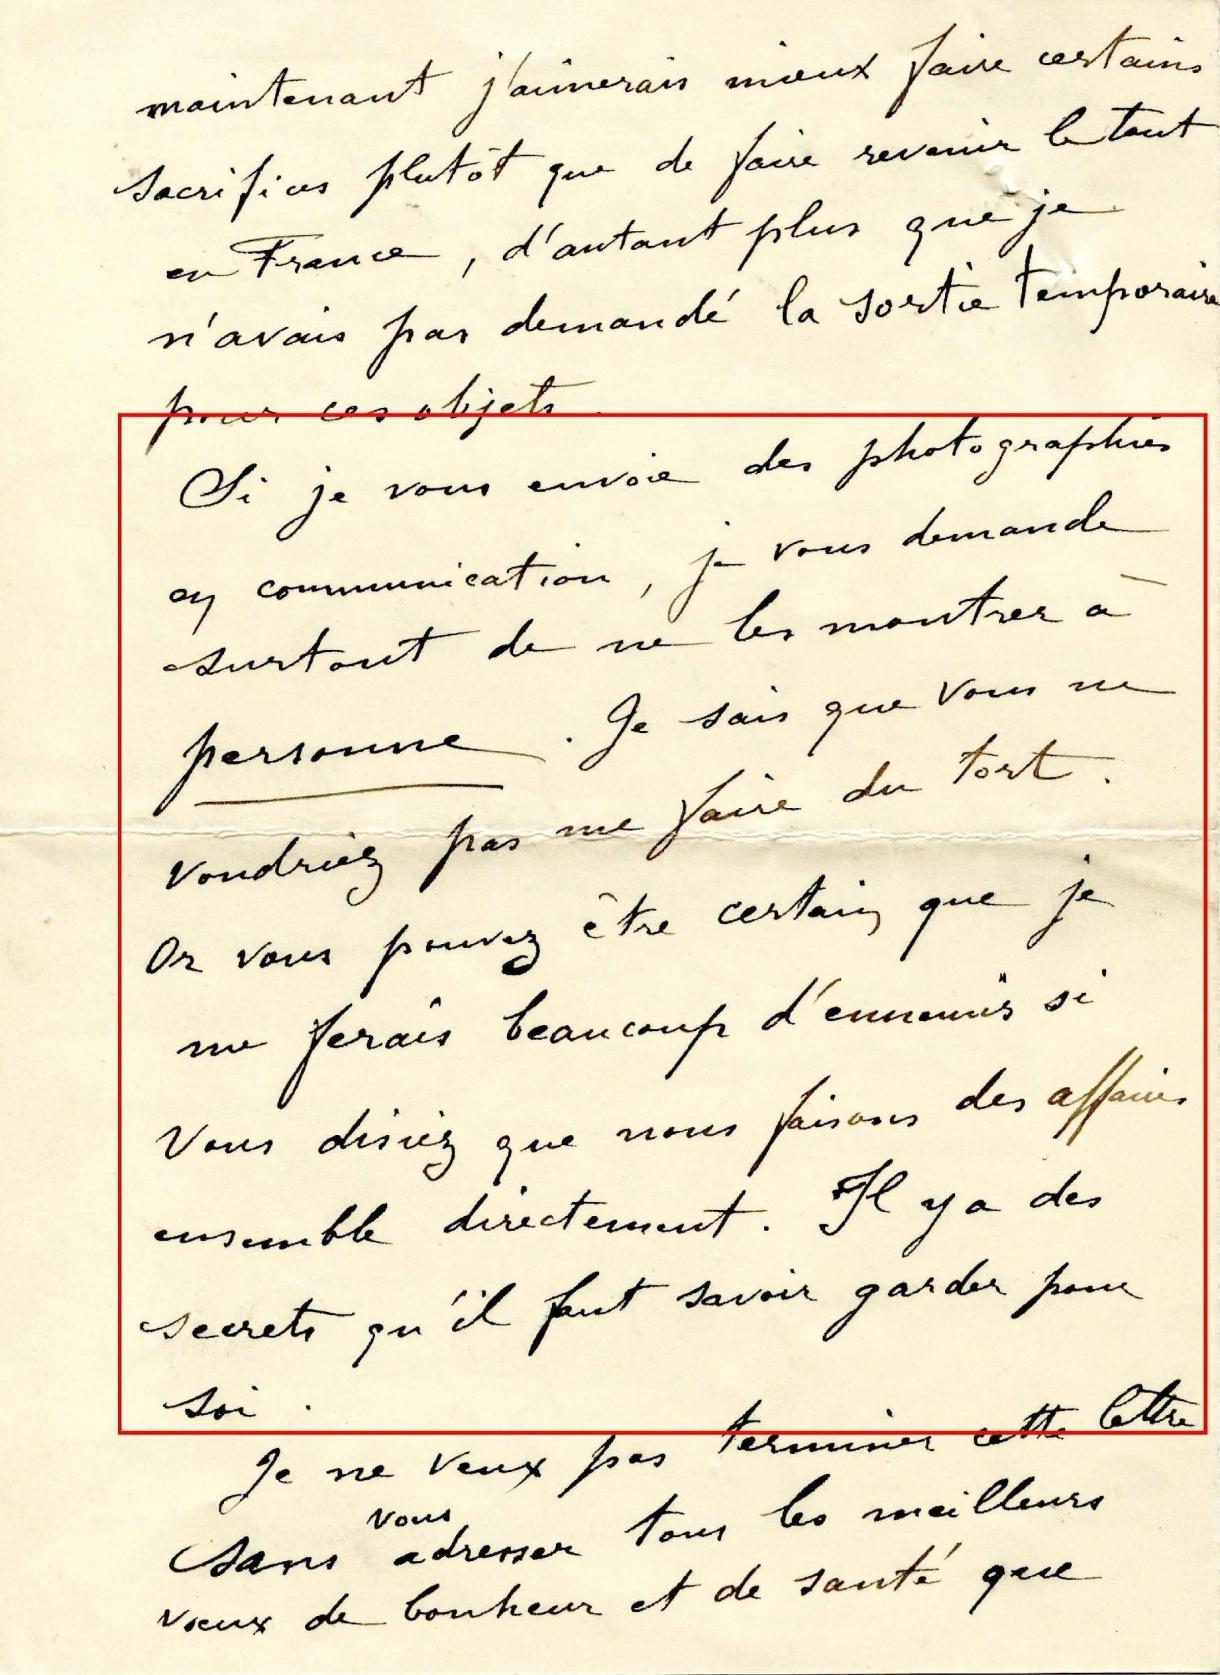 maintenant j'aimerais mieux faire certains
sacrifices plutôt que de faire revenir le tout
en France, d'autant plus que je
n'avais pas demandé la sortie temporaire
pour ces objets.
Si je vous envoie des photographies
en communication, je vous demande
surtout de ne les montrer à
personne. Je sais que vous ne
voudriez pas me faire du tort.
Or vous pouvez être certain que je
me ferais beaucoup d'ennemis si
vous disiez que nous faisons des affaires
ensemble directement. Il y a des
secrets qu'il faut savoir garder pour
soi.
Je ne veux pas terminer cette lettre
sans vous adresser tous les meilleurs
vœux de bonheur et de santé que